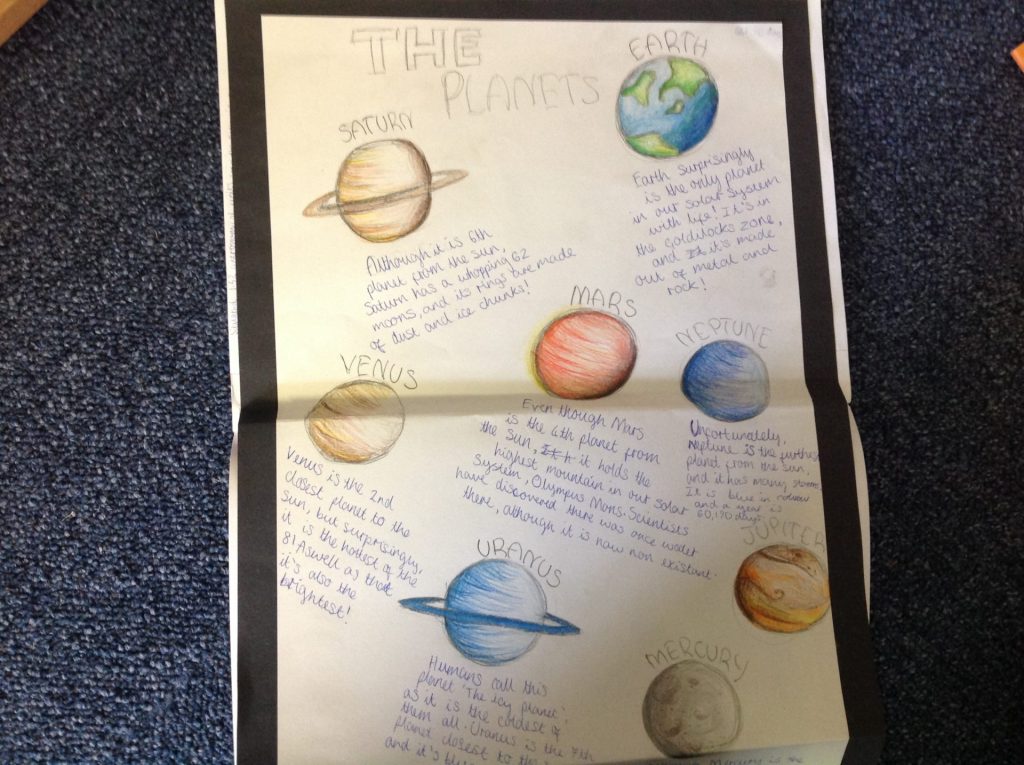 THE
PLANETS
EARTH
Earth surprisingly
is the only planet
in our solar system
with life! It's in
the Goldilocks zone,
and it's made
out of metal and
rock!
SATURN
Although it is 6th
planet from the sun,
Saturn has a whopping 62
moons, and its rings are made
of dust and ice chunks!
MARS
Even though Mars
is the 4th planet from
the sun, it holds the
highest mountain in our solar
system, Olympus Mons. Scientists
have discovered there was once water
there, although it is now non existant.
NEPTUNE
Unfortunately,
Neptune is the furthest
planet from the sun,
and it has many storms
It is blue in colour
and a year is
60,190 days
VENUS
Venus is the 2nd
closest planet to the
sun, but surprisingly,
it is the hottest of the
8! Aswell as that
it's also the
brightest!
JUPITER
URANUS
Humans call this
planet 'The icy planet',
as it is the coldest of
them all. Uranus is the 7th
planet closest to the
and it's
MERCURY
Mercury is the